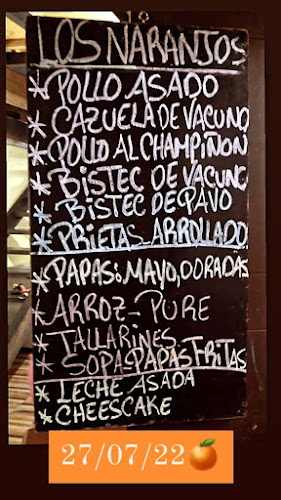 LOS NARANJOS
* POLLO ASADO
* CAZUELA DE VACUNO
* POLLO AL CHAMPIÑON
* BISTEC DE VACUNO
* BISTEC DE PAVO
* PRIETAS-ARROLLADO
* PAPAS: MAYO, DORADAS
* ARROZ-PURE
* TALLARINES
* SOPA-PAPAS FRITAS
* LECHE ASADA
* CHEESCAKE
27/07/22